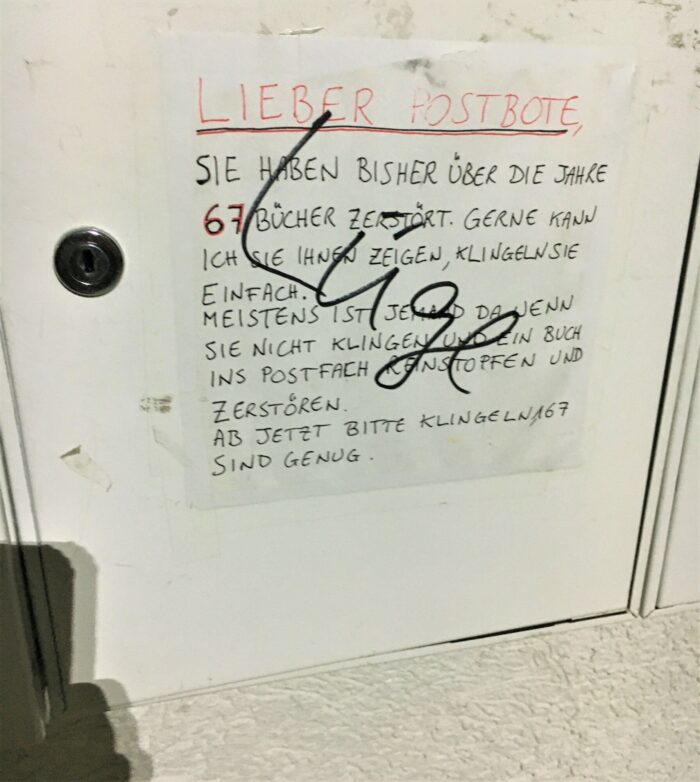 LIEBER POSTBOTE,
SIE HABEN BISHER ÜBER DIE JAHRE
67 BÜCHER ZERSTÖRT. GERNE KANN
ICH SIE IHNEN ZEIGEN, KLINGELN SIE
EINFACH.
MEISTENS IST JEMAND DA WENN
SIE NICHT KLINGEN UND EIN BUCH
INS POSTFACH REINSTOPFEN UND
ZERSTÖREN.
AB JETZT BITTE KLINGELN, 67
SIND GENUG.
Lüge